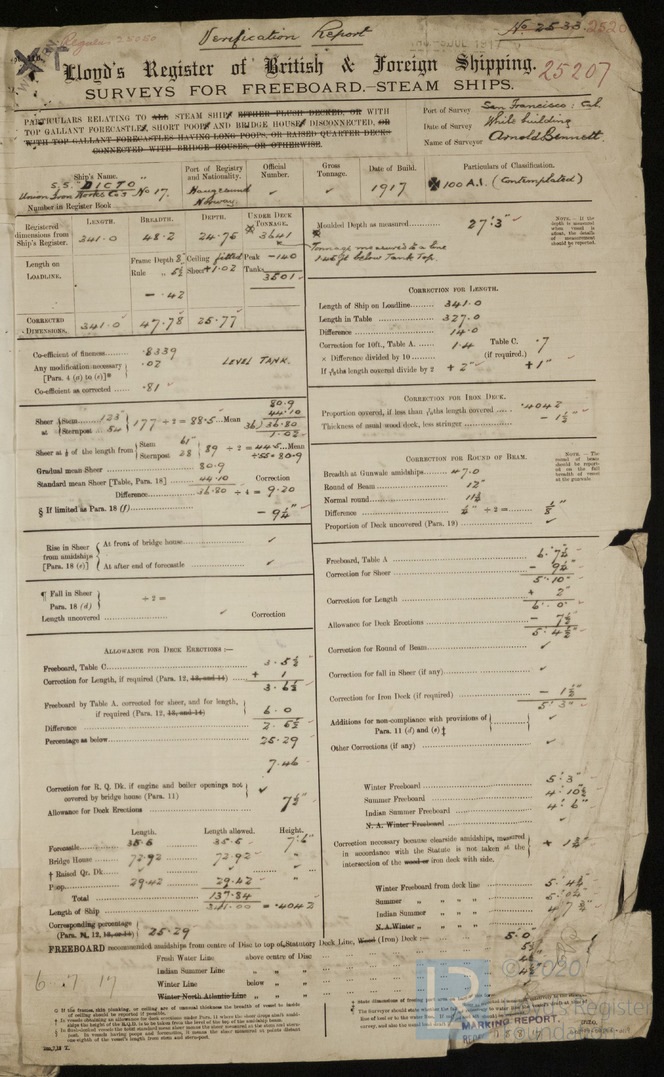 Verification Report
No 2533
25207
Lloyd's Register of British & Foreign Shipping.
SURVEYS FOR FREEBOARD.—STEAM SHIPS.
PARTICULARS RELATING TO ALL STEAM SHIPS EITHER FLUSH DECKED, OR WITH
TOP GALLANT FORECASTLES, SHORT POOPS AND BRIDGE HOUSES DISCONNECTED, OR
WITH TOP GALLANT FORECASTLES HAVING LONG POOPS, OR RAISED QUARTER DECKS
CONNECTED WITH BRIDGE HOUSES, OR OTHERWISE.
Port of Survey San Francisco: Cal
Date of Survey While building
Name of Surveyor Arnold Bennett
Ship's Name. Port of Registry and Nationality. Official Number. Gross Tonnage. Date of Build. Particulars of Classification.
S.S. "DICTO"
Union Iron Works Cos No 17. Haugesund Norway 1917 100 A.1. (Contemplated)
Number in Register Book
Registered dimensions from Ship's Register. LENGTH. BREADTH. DEPTH. UNDER DECK TONNAGE.
341.0 48.2 24.75 3641
Length on LOADLINE. Frame Depth 8 Ceiling fitted Peak -140
Rule " 5½ Sheer +1.02 Tanks 3501
- .42
CORRECTED DIMENSIONS. 341.0 47.78 25.77
Moulded Depth as measured 27'3"
Tonnage measured to a line
below Tank Top.
NOTE.—If the depth is measured when vessel is afloat, the details of measurement should be reported.
Co-efficient of fineness .8339
Any modification necessary [Para. 4 (a) to (e)]* .02 LEVEL TANK.
Co-efficient as corrected .81
CORRECTION FOR LENGTH.
Length of Ship on Loadline 341.0
Length in Table 327.0
Difference 14.0
Correction for 10ft., Table A. 1.4 Table C. .7
× Difference divided by 10 (if required.)
If 6/10ths length covered divide by 2 + 2" +1"
Sheer at Stem 123 Sternpost 54 177 ÷ 2 = 88.5 Mean
80.9
44.10
36) 36.80
1.02
Sheer at ⅛ of the length from Stem 61 Sternpost 28 89 ÷ 2 = 44.5 Mean
÷ .55 = 80.9
Gradual mean Sheer 80.9
Standard mean Sheer [Table, Para. 18] 44.10 Correction
Difference 36.80 ÷ 4 = 9.20
§ If limited as Para. 18 (f) - 9¼"
CORRECTION FOR IRON DECK.
Proportion covered, if less than 7/10ths length covered .4042
Thickness of usual wood deck, less stringer - 1½"
CORRECTION FOR ROUND OF BEAM.
Breadth at Gunwale amidships 47.0
Round of Beam 12"
Normal round 11¼
Difference ¼" ÷ 2 = ⅛"
Proportion of Deck uncovered (Para. 19)
NOTE.—The round of beam should be reported on the full breadth of vessel at the gunwale.
Rise in Sheer from amidships [Para. 18 (e)] At front of bridge house
At after end of forecastle
¶ Fall in Sheer Para. 18 (d) ÷ 2 =
Length uncovered Correction
Freeboard, Table A 6. 7¼
Correction for Sheer - 9¼
5'.10"
Correction for Length + 2"
6'. 0"
Allowance for Deck Erections - 7½
5'. 4½"
Correction for Round of Beam
Correction for fall in Sheer (if any)
Correction for Iron Deck (if required) - 1½"
5' 3"
Additions for non-compliance with provisions of Para. 11 (d) and (e) ‡
Other Corrections (if any)
ALLOWANCE FOR DECK ERECTIONS :—
Freeboard, Table C 3. 5½
Correction for Length, if required (Para. 12, 13, and 14) + 1
3. 6½
Freeboard by Table A, corrected for sheer, and for length, if required (Para. 12, 13, and 14) 6. 0
Difference 2. 5½
Percentage as below 25.29
7.46
Correction for R. Q. Dk. if engine and boiler openings not covered by bridge house (Para. 11)
Allowance for Deck Erections 7½"
Length. Length allowed. Height.
Forecastle 35.5 35.5 7'.6"
Bridge House 72.92 72.92
† Raised Qr. Dk.
Poop 29.42 29.42
Total 137.84
Length of Ship 341.00 = .4042
Corresponding percentage (Para. 11, 12, 13, or 14) 25.29
Winter Freeboard 5'. 3"
Summer Freeboard 4'. 10½
Indian Summer Freeboard 4'. 6"
N. A. Winter Freeboard
Correction necessary because clearside amidships, measured in accordance with the Statute is not taken at the intersection of the wood or iron deck with side. + 1¾
Winter Freeboard from deck line 5'. 4½
Summer " " " "
Indian Summer " " "
N. A. Winter " " "
FREEBOARD recommended amidships from centre of Disc to top of Statutory Deck Line, Wood (Iron) Deck :— 5.0
Fresh Water Line above centre of Disc
Indian Summer Line " "
Winter Line below "
Winter North Atlantic Line " "
6 . 7 17
© 2020
MARKING REPORT.